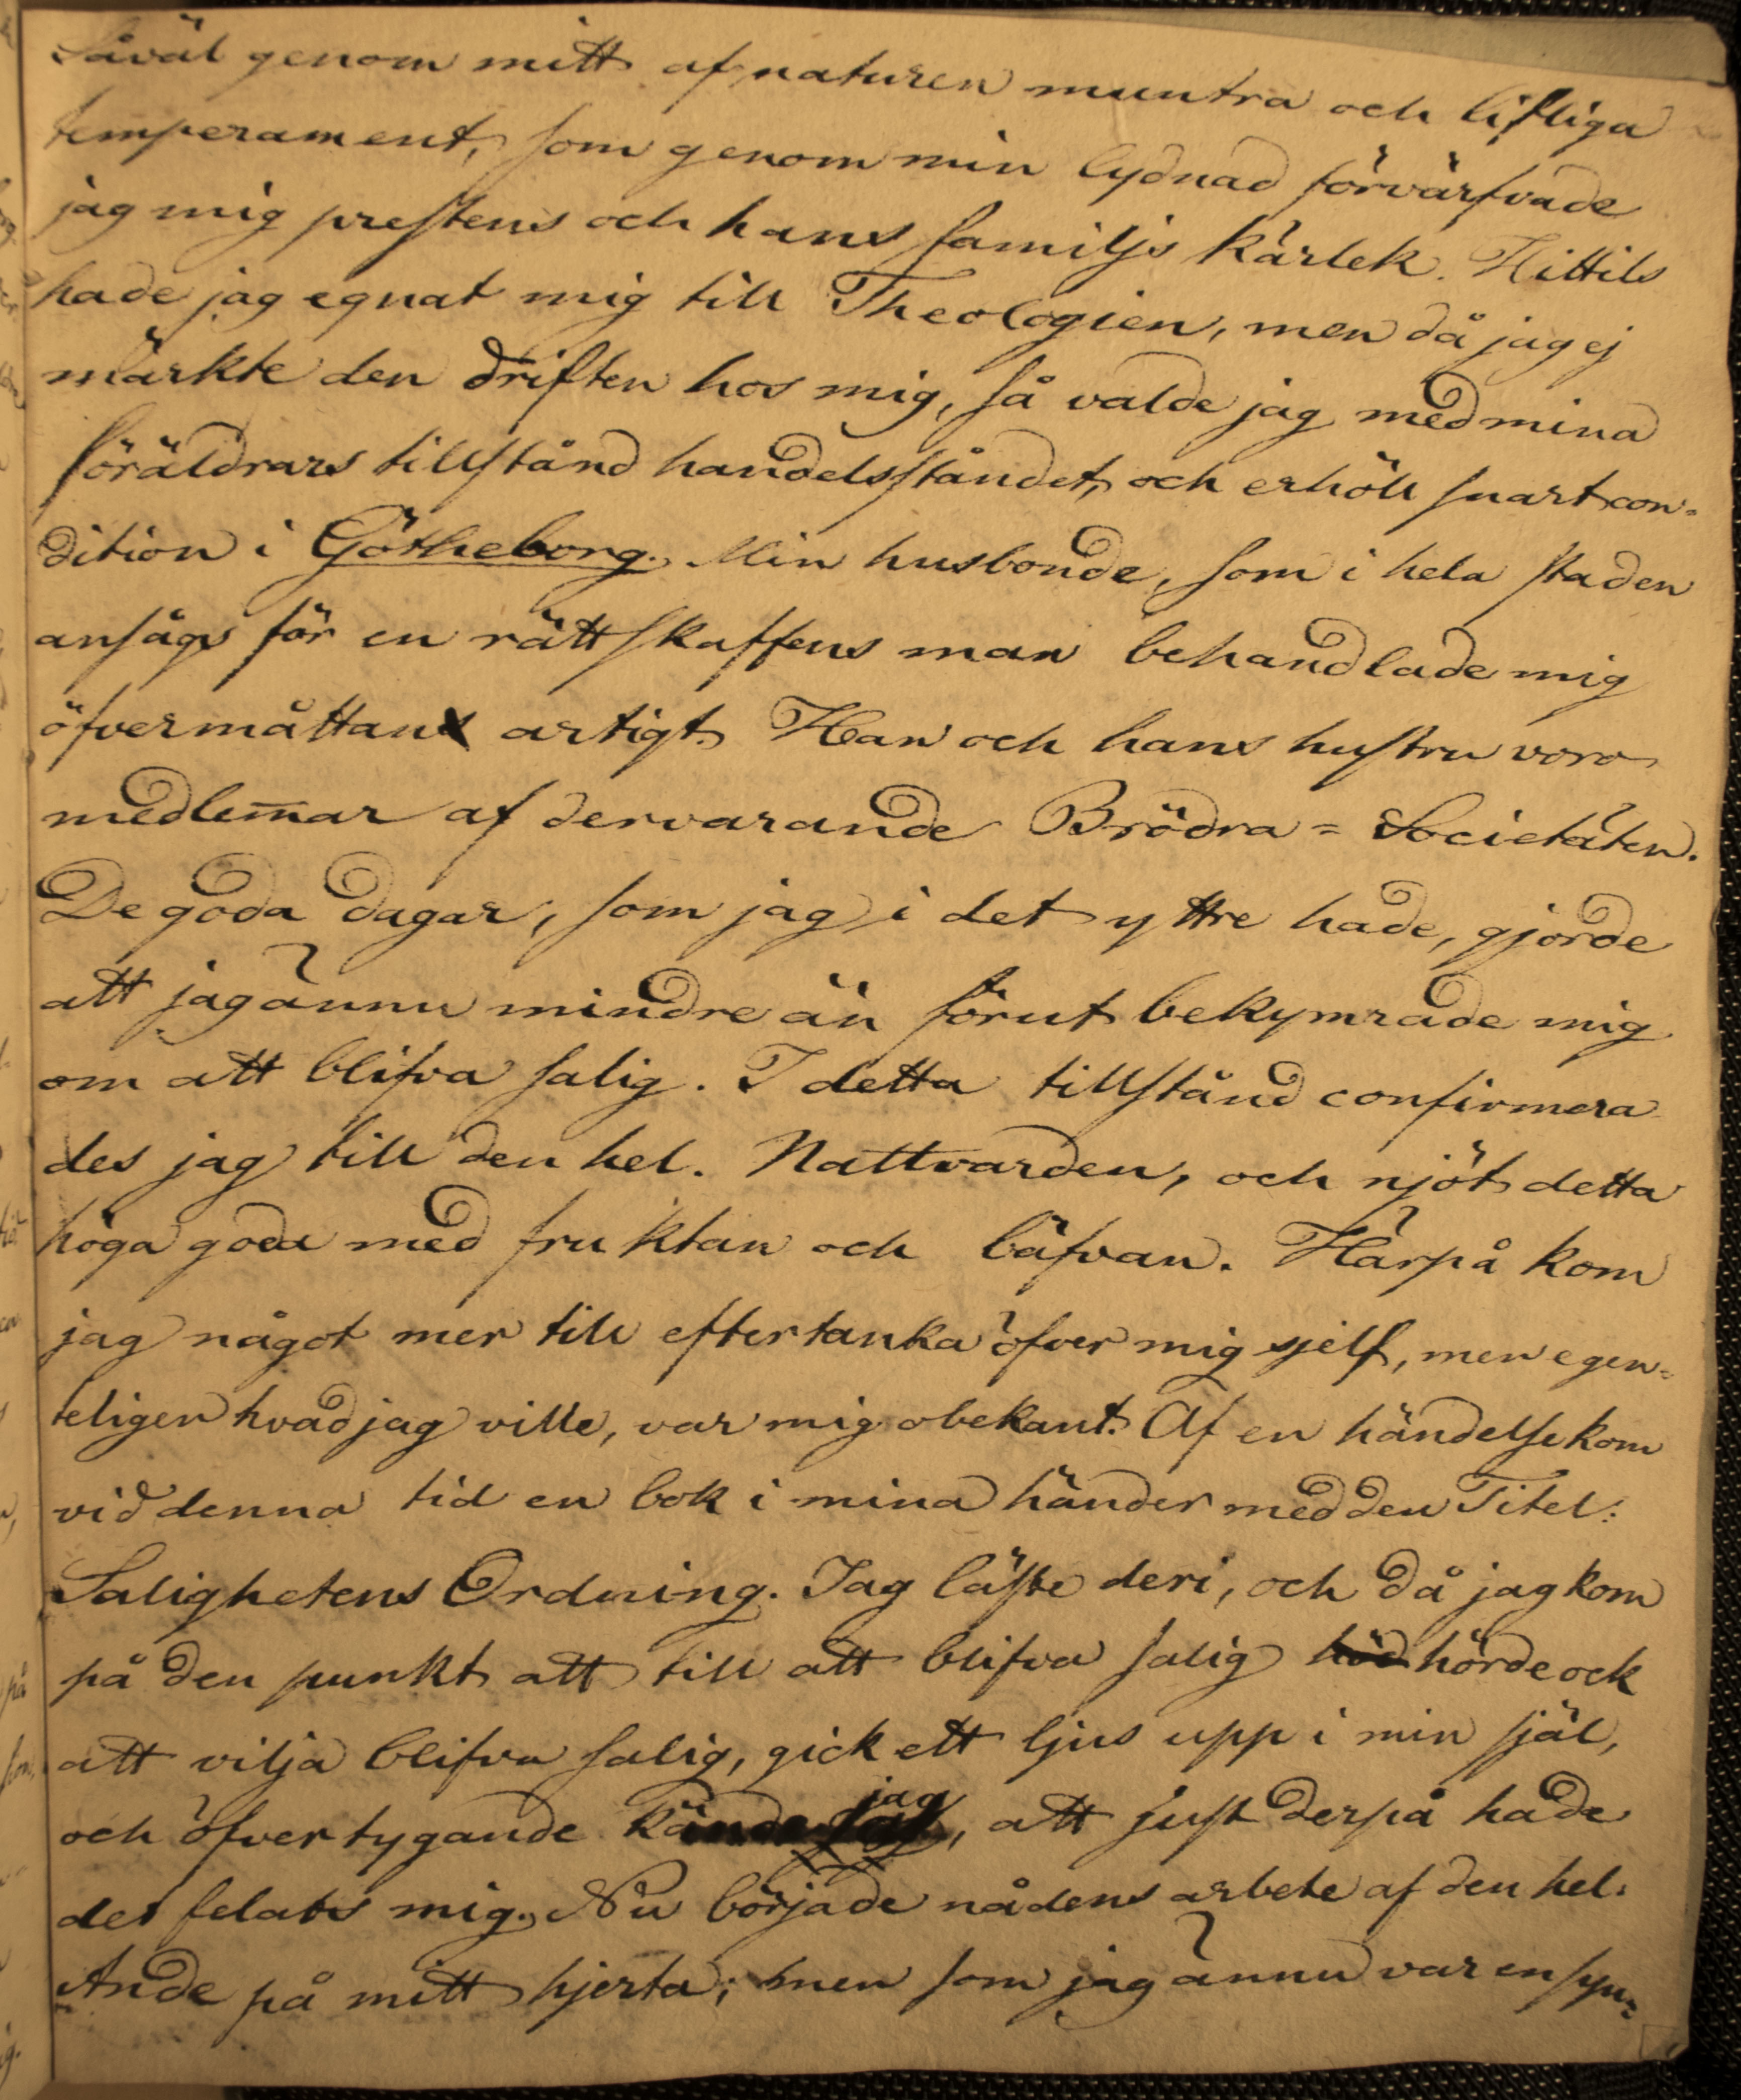 Såväl genom mitt af naturen muntra och lifliga
temperament, som genom min lydnad förvärfvade
jag mig prestens och hans familjs kärlek. Hittils
hade jag egnat mig till Theologien, men då jag ej
märkte den driften hos mig, så valde jag med mina
föräldrars tillstånd handelsståndet, och erhöll snart con=
dition i Götheborg. Min husbonde, som i hela staden
ansågs för en rättskaffens man behandlade mig
öfvermåttan artigt. Han och hans hustru voro
medlem̅ar af dervarande Brödra=Societäten.
De goda dagar, som jag i det yttre hade, gjorde
att jag ännu mindre än förut bekymrade mig
om att blifva salig. I detta tillstånd confirmera
des jag till den hel. Nattvarden, och njöt detta
höga goda med fruktan och bäfvan. Härpå kom
jag något mer till eftertanka öfver mig sjelf, men egen=
teligen hvad jag ville, var mig obekant. Af en händelse kom
vid denna tid en bok i mina händer med den Titel:
Salighetens Ordning. Jag läste deri, och då jag kom
på den punkt att till att blifva salig höd hörde ock
att vilja blifva salig, gick ett ljus upp i min själ,
och öfvertygande kände jag, att just derpå hade
det felats mig. Nu började nådens arbete af den hel.
Ande på mitt hjerta; men som jag ännu var en syn=